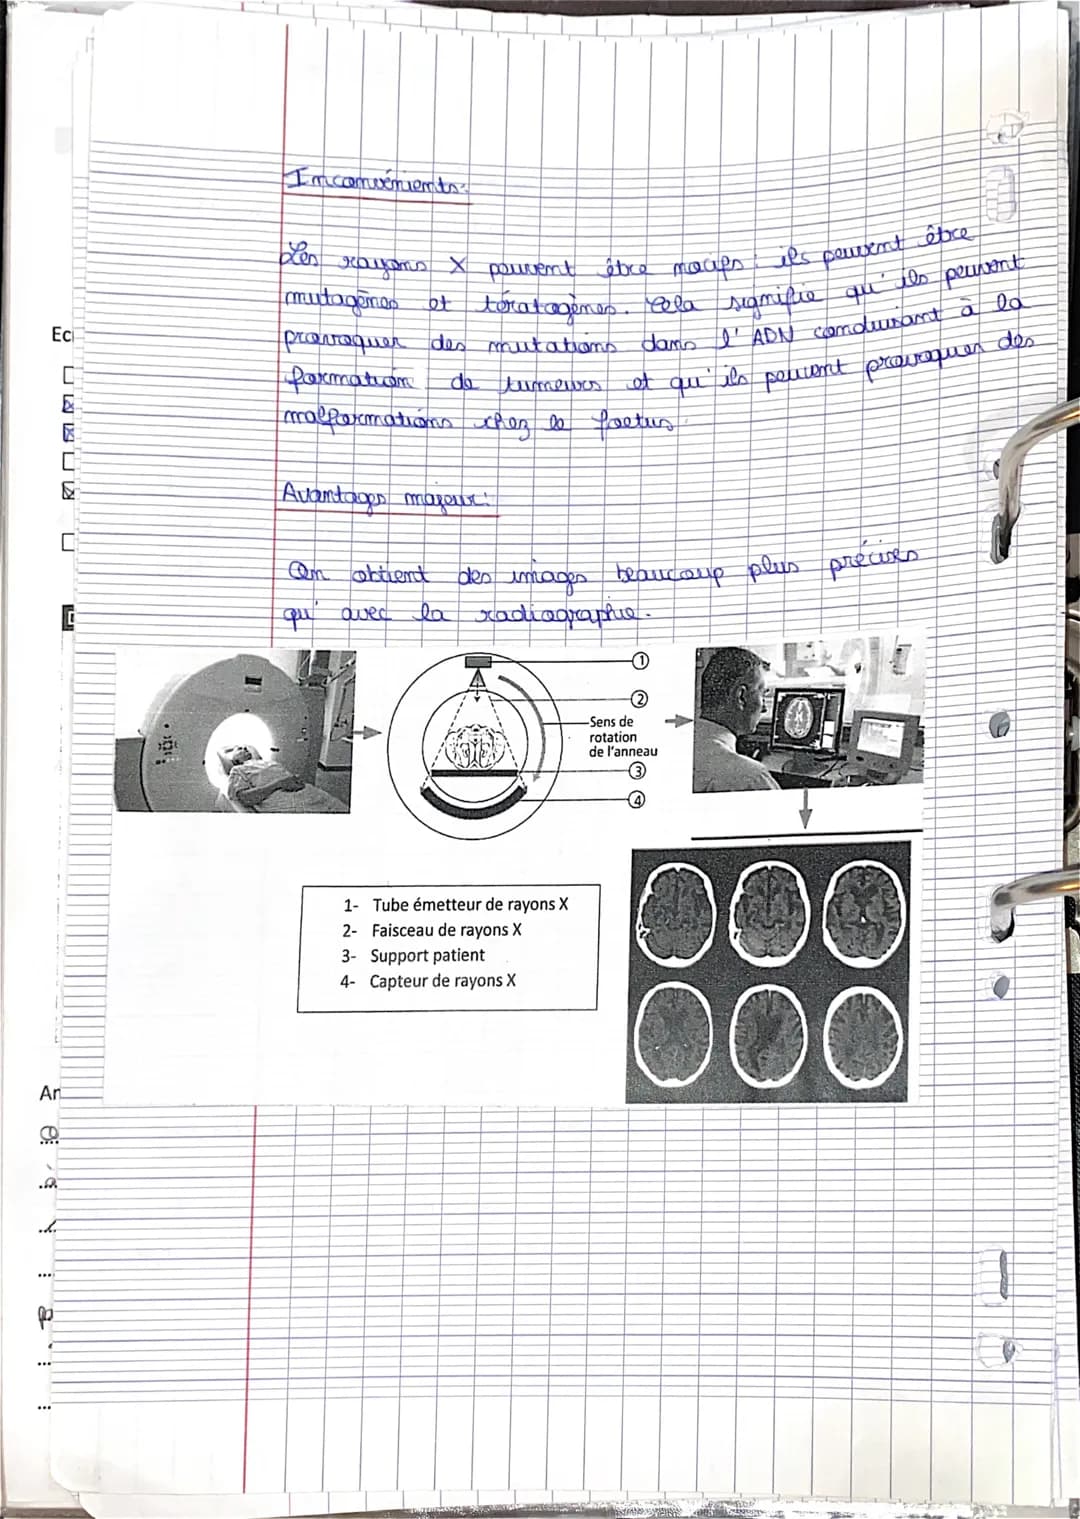 Inconvénients:
Les rayons X peuvent être nocifs : ils peuvent être
mutagènes et tératogènes. Cela signifie qu'ils peuvent
provoquer des mutations dans l'ADN conduisant à la
formation de tumeurs et qu'ils peuvent provoquer des
malformations chez le foetus.
Avantages majeur:
On obtient des images beaucoup plus précises
qu'avec la radiographie.
1
2
Sens de
rotation
de l'anneau
3
4
1- Tube émetteur de rayons X
2- Faisceau de rayons X
3- Support patient
4- Capteur de rayons X